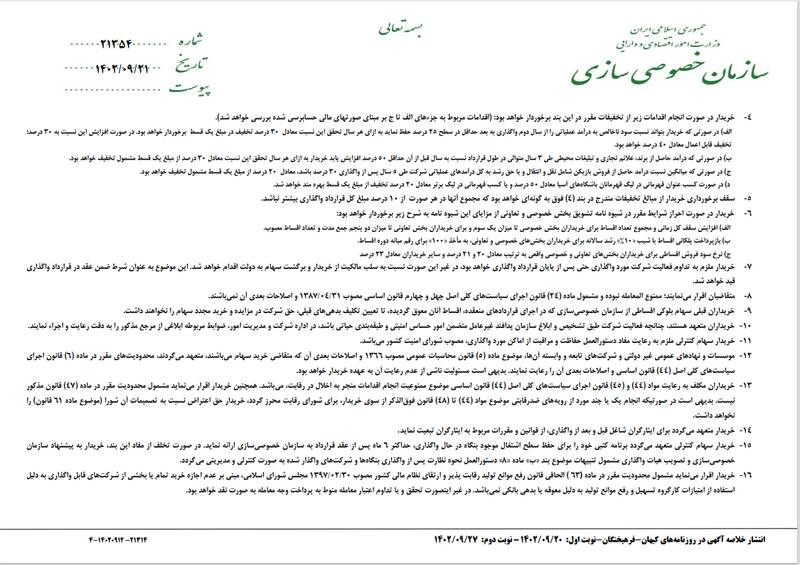 بسمه تعالی
جمهوری اسلامی ایران
وزارت امور اقتصادی و دارایی
سازمان خصوصی سازی
شماره ۲۱۳۵۴
تاریخ ۱۴۰۲/۰۹/۲۱
پیوست
۴- خریدار در صورت انجام اقدامات زیر از تخفیفات مقرر در این بند برخوردار خواهد بود: (اقدامات مربوط به جزءهای الف تا ج بر مبنای صورتهای مالی حسابرسی شده بررسی خواهد شد).
الف) در صورتی که خریدار بتواند نسبت سود ناخالص به درآمد عملیاتی را از سال دوم واگذاری به بعد حداقل در سطح ۲۵ درصد حفظ نماید به ازای هر سال تحقق این نسبت معادل ۳۰ درصد تخفیف در مبلغ یک قسط برخوردار خواهد بود. در صورت افزایش این نسبت به ۳۰ درصد؛
تخفیف قابل اعمال معادل ۴۰ درصد خواهد بود.
ب) در صورتی که درآمد حاصل از برند، علائم تجاری و تبلیغات محیطی طی ۳ سال متوالی در طول قرارداد نسبت به سال قبل از آن حداقل ۵۰ درصد افزایش یابد خریدار به ازای هر سال تحقق این نسبت معادل ۳۰ درصد از مبلغ یک قسط مشمول تخفیف خواهد بود.
ج) در صورتی که میانگین نسبت درآمد حاصل از فروش بازیکن شامل نقل و انتقال و یا حق رشد به کل درآمدهای عملیاتی شرکت طی ۵ سال پس از واگذاری ۳۰ درصد باشد، معادل ۲۰ درصد از مبلغ یک قسط مشمول تخفیف خواهد بود.
د) در صورت کسب عنوان قهرمانی در لیگ قهرمانان باشگاه‌های آسیا معادل ۵۰ درصد و یا کسب قهرمانی در لیگ برتر معادل ۲۰ درصد تخفیف از مبلغ یک قسط بهره مند خواهد شد.
۵- سقف برخورداری خریدار از مبالغ تخفیفات مندرج در بند (۴) فوق به گونه‌ای خواهد بود که مجموع آنها در هر صورت از ۱۰ درصد مبلغ کل قرارداد واگذاری بیشتر نباشد.
۶- خریدار در صورت احراز شرایط مقرر در شیوه نامه تشویق بخش خصوصی و تعاونی از مزایای این شیوه نامه به شرح زیر برخوردار خواهد بود:
الف) افزایش سقف کل زمانی و مجموع تعداد اقساط برای خریداران بخش خصوصی تا میزان یک سوم و برای خریداران بخش تعاونی تا میزان دو پنجم جمع مدت و تعداد اقساط مصوب.
ب) بازپرداخت پلکانی اقساط با شیب «۱۰٪» رشد سالانه برای خریداران بخش‌های خصوصی و تعاونی، به مأخذ «۱۰۰» برای رقم میانه دوره اقساط.
ج) نرخ سود فروش اقساطی برای خریداران بخش‌های تعاونی و خصوصی واقعی به ترتیب معادل ۲۰ و ۲۱ درصد و سایر خریداران معادل ۲۳ درصد
۷- خریدار ملزم به تداوم فعالیت شرکت مورد واگذاری حتی پس از پایان قرارداد واگذاری خواهد بود، در غیر این صورت نسبت به سلب مالکیت از خریدار و برگشت سهام به دولت اقدام خواهد شد. این موضوع به عنوان شرط ضمن عقد در قرارداد واگذاری
قید خواهد شد.
۸- متقاضیان اقرار می‌نمایند؛ ممنوع المعامله نبوده و مشمول ماده (۲۴) قانون اجرای سیاست‌های کلی اصل چهل و چهارم قانون اساسی مصوب ۱۳۸۷/۰۴/۳۱ و اصلاحات بعدی آن نمی‌باشند.
۹- خریداران قبلی سهام بلوکی اقساطی از سازمان خصوصی‌سازی که در اجرای قراردادهای منعقده، اقساط آنان معوق گردیده، تا تعیین تکلیف بدهی‌های قبلی، حق شرکت در مزایده و خرید مجدد سهام را نخواهند داشت.
۱۰- خریداران متعهد هستند، چنانچه فعالیت شرکت طبق تشخیص و ابلاغ سازمان پدافند غیرعامل متضمن امور حساس امنیتی و طبقه‌بندی حیاتی باشد، در اداره شرکت و مدیریت امور، ضوابط مربوطه ابلاغی از مرجع مذکور را به دقت رعایت و اجراء نمایند.
۱۱- خریدار سهام کنترلی ملزم به رعایت مفاد دستورالعمل حفاظت و مراقبت از اماکن مورد واگذاری، مصوب شورای امنیت کشور می‌باشد.
۱۲- موسسات و نهادهای عمومی غیر دولتی و شرکت‌های تابعه و وابسته آن‌ها، موضوع ماده (۵) قانون محاسبات عمومی مصوب ۱۳۶۶ و اصلاحات بعدی آن که متقاضی خرید سهام می‌باشند، متعهد می‌گردند، محدودیت‌های مقرر در ماده (۶) قانون اجرای
سیاست‌های کلی اصل (۴۴) قانون اساسی و اصلاحات بعدی آن را رعایت نمایند. بدیهی است مسئولیت ناشی از عدم رعایت آن به عهده خریدار خواهد بود.
۱۳- خریداران مکلف به رعایت مواد (۴۴) و (۴۵) قانون اجرای سیاست‌های کلی اصل (۴۴) قانون اساسی موضوع ممنوعیت انجام اقدامات منجر به اخلال در رقابت، می‌باشند. همچنین خریدار اقرار می‌نماید مشمول محدودیت مقرر در ماده (۴۷) قانون مذکور
نیست. بدیهی است در صورتیکه انجام یک یا چند مورد از رویه‌های ضدرقابتی موضوع مواد (۴۴) تا (۴۸) قانون فوق‌الذکر از سوی خریدار، برای شورای رقابت محرز گردد، خریدار حق اعتراض نسبت به تصمیمات آن شورا (موضوع ماده ۶۱ قانون) را
نخواهد داشت.
۱۴- خریدار متعهد می‌گردد برای ایثارگران شاغل قبل و بعد از واگذاری، از قوانین و مقررات مربوط به ایثارگران تبعیت نماید.
۱۵- خریدار سهام کنترلی متعهد می‌گردد برنامه کتبی خود را برای حفظ سطح اشتغال موجود بنگاه در حال واگذاری، حداکثر ۶ ماه پس از عقد قرارداد به سازمان خصوصی‌سازی ارائه نماید. در صورت تخلف از مفاد این بند، خریدار به پیشنهاد سازمان
خصوصی‌سازی و تصویب هیات واگذاری مشمول تنبیهات موضوع بند «ب» ماده «۸» دستورالعمل نحوه نظارت پس از واگذاری بنگاه‌ها و شرکت‌های واگذار شده به صورت کنترلی و مدیریتی می‌گردد.
۱۶- خریدار اقرار می‌نماید مشمول محدودیت مقرر در ماده (۶۳) الحاقی قانون رفع موانع تولید رقابت پذیر و ارتقای نظام مالی کشور مصوب ۱۳۹۷/۰۲/۳۰ مجلس شورای اسلامی، مبنی بر عدم اجازه خرید تمام یا بخشی از شرکت‌های قابل واگذاری به دلیل
استفاده از امتیازات کارگروه تسهیل و رفع موانع تولید به دلیل معوقه یا بدهی بانکی نمی‌باشد. در غیر اینصورت تحقق و یا تداوم اعتبار معامله منوط به پرداخت وجه معامله به صورت نقد خواهد بود.
انتشار خلاصه آگهی در روزنامه‌های کیهان-فرهیختگان-نوبت اول: ۱۴۰۲/۰۹/۲۰ - نوبت دوم: ۱۴۰۲/۰۹/۲۷
۴-۱۴۰۲۰۹۱۲-۲۱۳۱۴